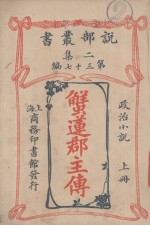 說部叢書
二集第三十七編
政治小說
上冊
蟹蓮郡主傳
上海商務印書館發行